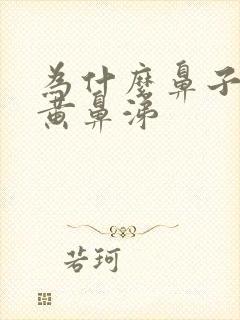 为什麼鼻子
黄鼻涕
若珂